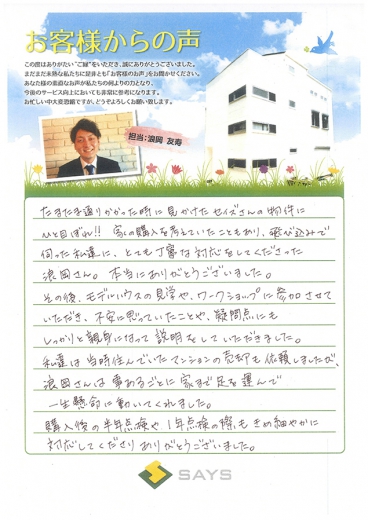 お客様からの声
この度はありがたい"ご縁"をいただき、誠にありがとうございました。
まだまだ未熟な私たちに是非とも「お客様のお声」をお聞かせください。
あなた様の素直なお声が私たちの何よりの力となり、
今後のサービス向上においても非常に参考になります。
お忙しい中大変恐縮ですが、どうぞよろしくお願い致します。
担当:浪岡 友寿
たまたま通りかかった時に見かけたセイズさんの物件に
ひと目ぼれ!! 家の購入を考えていたこともあり、飛び込みで
伺った私達に、とても丁寧な対応をしてくださった
浪岡さん。本当にありがとうございました。
その後、モデルハウスの見学や、ワークショップに参加させて
いただき、不安に思っていたことや、疑問点にも
しっかりと親身になって説明をしていただきました。
私達は当時住んでいたマンションの売却も依頼しましたが、
浪岡さんは事あるごとに家まで足を運んで
一生懸命に動いてくれました。
購入後の半年点検や1年点検の際もきめ細やかに
対応してくださりありがとうございました。
SAYS